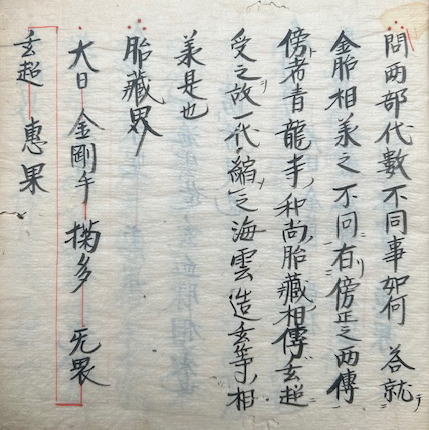 問両部代數不同事如何 答就テ
金胎相義之不同有傍正之両傳
傍者青龍寺ノ和尚胎藏相傳玄超
受之故一代縮之海雲造玄等ノ相
義是也
胎藏界
大日 金剛手 掬多 无畏
玄超 惠果